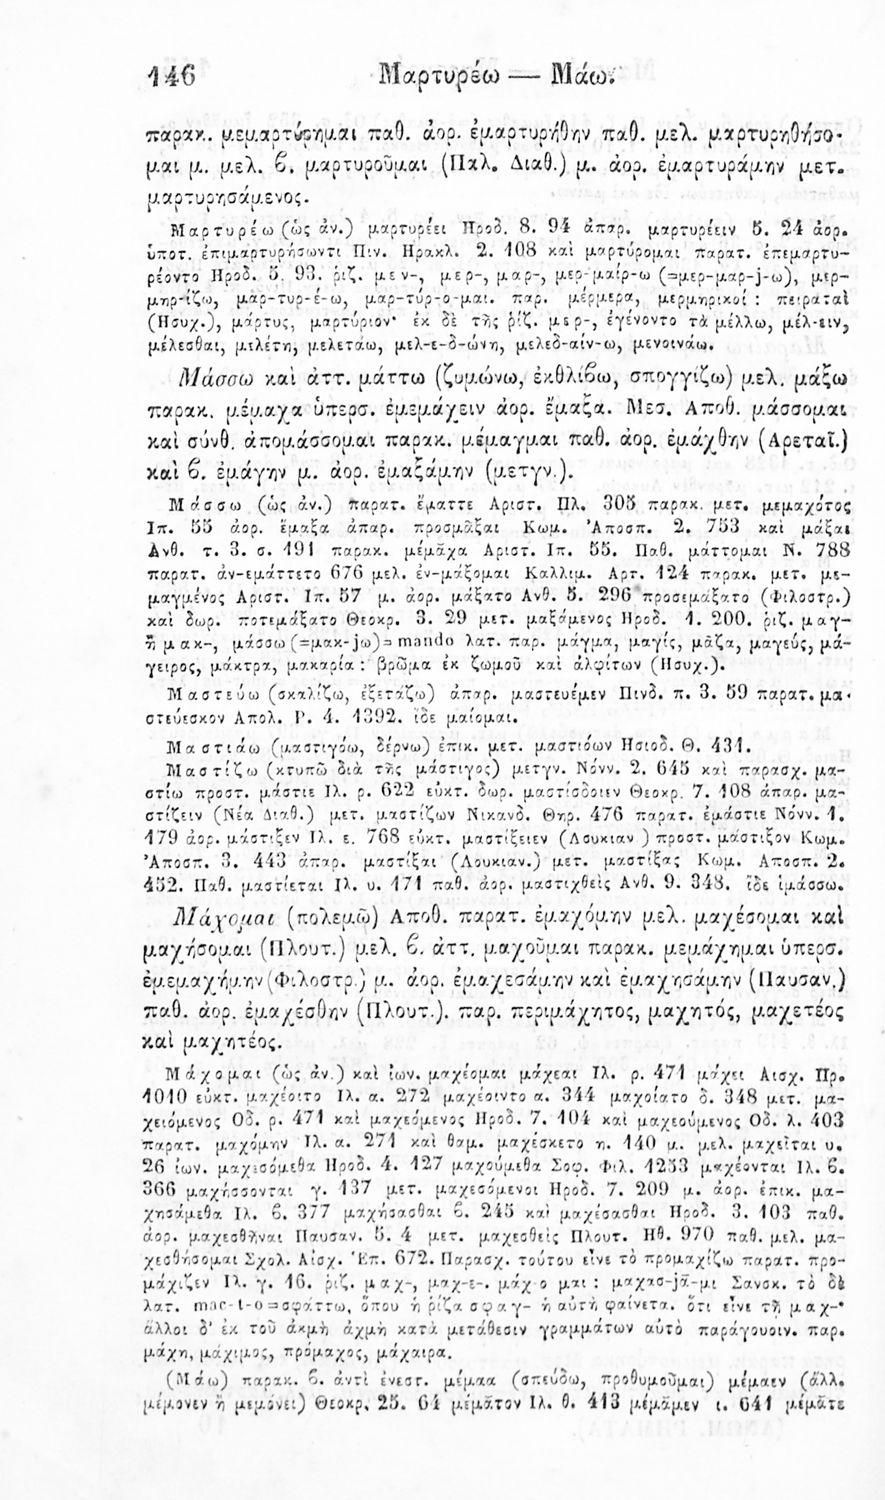 146 Μαρτυρέω — Μάω.
παρακ. μεμαρτύρημαι παθ. ἀορ. ἐμαρτυρήθην παθ. μελ. μαρτυρηθήσο-
μαι μ. μελ. β. μαρτυροῦμαι (Παλ. Διαθ.) μ. ἀορ. ἐμαρτυράμην μετ.
μαρτυρησάμενος.
Μαρτυρέω (ὡς ἀν.) μαρτυρέει Ηροδ. 8. 94 ἀπαρ. μαρτυρέειν 5. 24 ἀορ.
ὑποτ. ἐπιμαρτυρήσωντι Πιν. Ηρακλ. 2. 108 καὶ μαρτύρομαι παρατ. ἐπεμαρτυ-
ρέοντο Ηροδ. 5. 93. ῥιζ. μεν-, μερ-, μαρ-, μερ-μαίρ-ω (=μερ-μαρ-j-ω), μερ-
μηρ-ίζω, μαρ-τυρ-έ-ω, μαρ-τύρ-ο-μαι. παρ. μέρμερα, μερμηρικοί : πειραταὶ
(Ησυχ.), μάρτυς, μαρτύριον· ἐκ δὲ τῆς ῥίζ. μερ-, ἐγένοντο τὰ μέλλω, μέλ-ειν,
μέλεσθαι, μελέτη, μελετάω, μελ-ε-δ-ώνη, μελεδ-αίν-ω, μενοινάω.
Μάσσω καὶ ἀττ. μάττω (ζυμώνω, ἐκθλίβω, σπογγίζω) μελ. μάξω
παρακ. μέμαχα ὑπερσ. ἐμεμάχειν ἀορ. ἔμαξα. Μεσ. Αποθ. μάσσομαι
καὶ σύνθ. ἀπομάσσομαι παρακ. μέμαγμαι παθ. ἀορ. ἐμάχθην (Αρεταῖ.)
καὶ β. ἐμάγην μ. ἀορ. ἐμαξάμην (μετγν.).
Μάσσω (ὡς ἀν.) παρατ. ἔματτε Αριστ. Πλ. 305 παρακ. μετ. μεμαχότος
Ιπ. 55 ἀορ. ἔμαξα ἀπαρ. προσμᾶξαι Κωμ. Ἀποσπ. 2. 753 καὶ μάξαι
Ανθ. τ. 3. σ. 191 παρακ. μέμᾶχα Αριστ. Ιπ. 55. Παθ. μάττομαι Ν. 788
παρατ. ἀν-εμάττετο 676 μελ. ἐν-μάξομαι Καλλιμ. Αρτ. 124 παρακ. μετ. με-
μαγμένος Αριστ. Ιπ. 57 μ. ἀορ. μάξατο Ανθ. 5. 296 προσεμάξατο (Φιλοστρ.)
καὶ δωρ. ποτεμάξατο Θεοκρ. 3. 29 μετ. μαξάμενος Ηροδ. 1. 200. ῥιζ. μαγ-
ἢ μακ-, μάσσω (=μακ-jω)= mando λατ. παρ. μάγμα, μαγίς, μᾶζα, μαγεύς, μά-
γειρος, μάκτρα, μακαρία : βρῶμα ἐκ ζωμοῦ καὶ ἀλφίτων (Ησυχ.).
Μαστεύω (σκαλίζω, ἐξετάζω) ἀπαρ. μαστευέμεν Πινδ. π. 3. 59 παρατ. μα-
στεύεσκον Απολ. Ρ. 4. 1392. ἴδε μαίομαι.
Μαστιάω (μαστιγόω, δέρνω) ἐπικ. μετ. μαστιόων Ησιοδ. Θ. 431.
Μαστίζω (κτυπῶ διὰ τῆς μάστιγος) μετγν. Νόνν. 2. 645 καὶ παρασχ. μα-
στίω προστ. μάστιε Ιλ. ρ. 622 εὐκτ. δωρ. μαστίσδοιεν Θεοκρ. 7. 108 ἀπαρ. μα-
στίζειν (Νέα Διαθ.) μετ. μαστίζων Νικανδ. Θηρ. 476 παρατ. ἐμάστιε Νόνν. 1.
179 ἀορ. μάστιξεν Ιλ. ε. 768 εὐκτ. μαστίξειεν (Λουκιαν ) προστ. μάστιξον Κωμ.
Ἀποσπ. 3. 443 ἀπαρ. μαστίξαι (Λουκιαν.) μετ. μαστίξας Κωμ. Αποσπ. 2.
452. Παθ. μαστίεται Ιλ. υ. 171 παθ. ἀορ. μαστιχθεὶς Ανθ. 9. 348. ἴδε ἱμάσσω.
Μάχομαι (πολεμῶ) Αποθ. παρατ. ἐμαχόμην μελ. μαχέσομαι καὶ
μαχήσομαι (Πλουτ.) μελ. β. ἀττ. μαχοῦμαι παρακ. μεμάχημαι ὑπερσ.
ἐμεμαχήμην (Φιλοστρ.) μ. ἀορ. ἐμαχεσάμην καὶ ἐμαχησάμην (Παυσαν.)
παθ. ἀορ. ἐμαχέσθην (Πλουτ.). παρ. περιμάχητος, μαχητός, μαχετέος
καὶ μαχητέος.
Μάχομαι (ὡς ἀν.) καὶ ἰων. μαχέομαι μάχεαι Ιλ. ρ. 471 μάχει Αισχ. Πρ.
1010 εὐκτ. μαχέοιτο Ιλ. α. 272 μαχέοιντο α. 344 μαχοίατο δ. 348 μετ. μα-
χειόμενος Οδ. ρ. 471 καὶ μαχεόμενος Ηροδ. 7. 104 καὶ μαχεούμενος Οδ. λ. 403
παρατ. μαχόμην Ιλ. α. 271 καὶ θαμ. μαχέσκετο η. 140 μ. μελ. μαχεῖται υ.
26 ἰων. μαχεσόμεθα Ηροδ. 4. 127 μαχούμεθα Σοφ. Φιλ. 1253 μαχέονται Ιλ. β.
366 μαχήσσονται γ. 137 μετ. μαχεσόμενοι Ηροδ. 7. 209 μ. ἀορ. ἐπικ. μα-
χησάμεθα Ιλ. β. 377 μαχήσασθαι β. 245 καὶ μαχέσασθαι Ηροδ. 3. 103 παθ.
ἀορ. μαχεσθῆναι Παυσαν. 5. 4 μετ. μαχεσθεὶς Πλουτ. Ηθ. 970 παθ. μελ. μα-
χεσθήσομαι Σχολ. Αἰσχ. Ἑπ. 672. Παρασχ. τούτου εἶνε τὸ προμαχίζω παρατ. προ-
μάχιζεν Ιλ. γ. 16. ῥιζ. μαχ-, μαχ-ε-. μάχ ο μαι : μαχασ-jᾶ-μι Σανσκ. τὸ δὲ
λατ. mac-t-o=σφάττω, ὅπου ἡ ῥίζα σφαγ- ἡ αὐτὴ φαίνετα. ὅτι εἶνε τῇ μαχ-·
ἄλλοι δ' ἐκ τοῦ ἀκμὴ ἀχμὴ κατὰ μετάθεσιν γραμμάτων αὐτὸ παράγουσιν. παρ.
μάχη, μάχιμος, πρόμαχος, μάχαιρα.
(Μάω) παρακ. β. ἀντὶ ἐνεστ. μέμαα (σπεύδω, προθυμοῦμαι) μέμαεν (ἄλλ.
μέμονεν ἢ μεμόνει) Θεοκρ. 25. 64 μέμᾰτον Ιλ. θ. 413 μέμᾰμεν ι. 641 μέμᾰτε